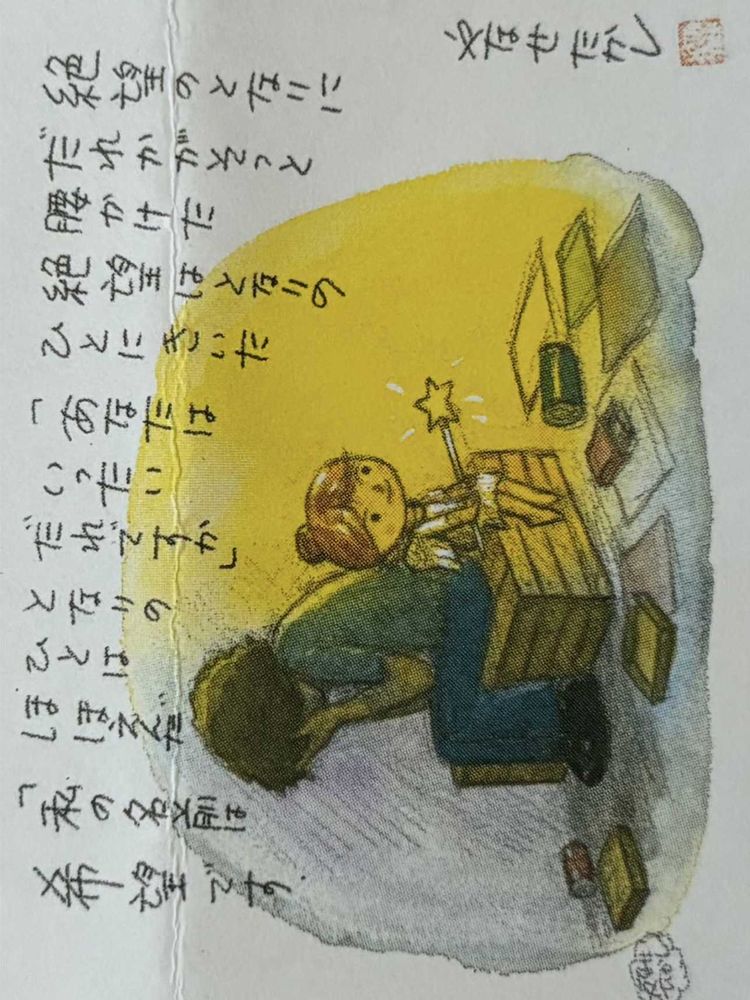 絶望のとなりに
だれかがそっと
腰かけた
絶望はとなりの
ひとにきいた
「あなたは
いったい
だれですか」
となりの
ひとは
ほほえんだ
「私の名前は
希望です
やなせたかし